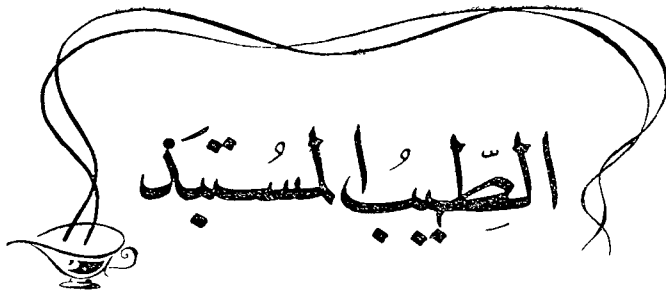 الطِّيبُ المُستبَد